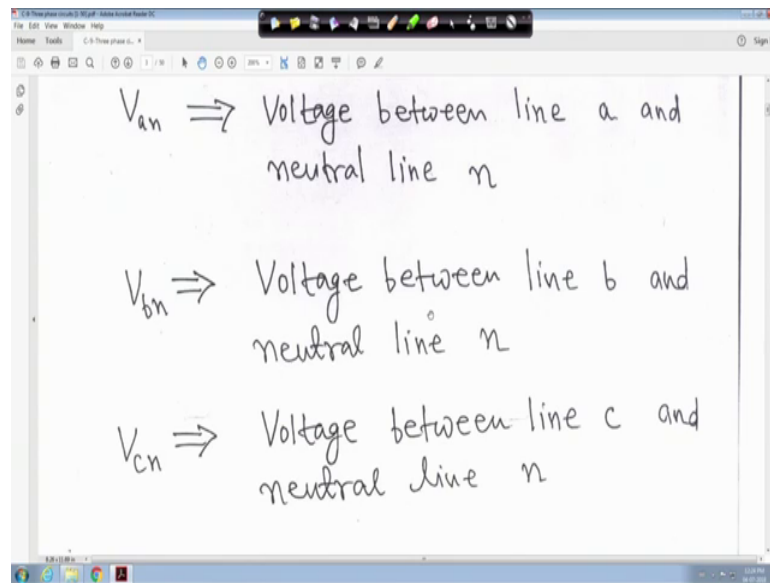 C-9-Three phase circuits [1-30].pdf - Adobe Acrobat Reader DC
File Edit View Window Help
Home Tools C-9-Three phase ci... × Sign
Van ⇒ Voltage between line a and
neutral line n
Vbn ⇒ Voltage between line b and
neutral line n
Vcn ⇒ Voltage between line c and
neutral line n